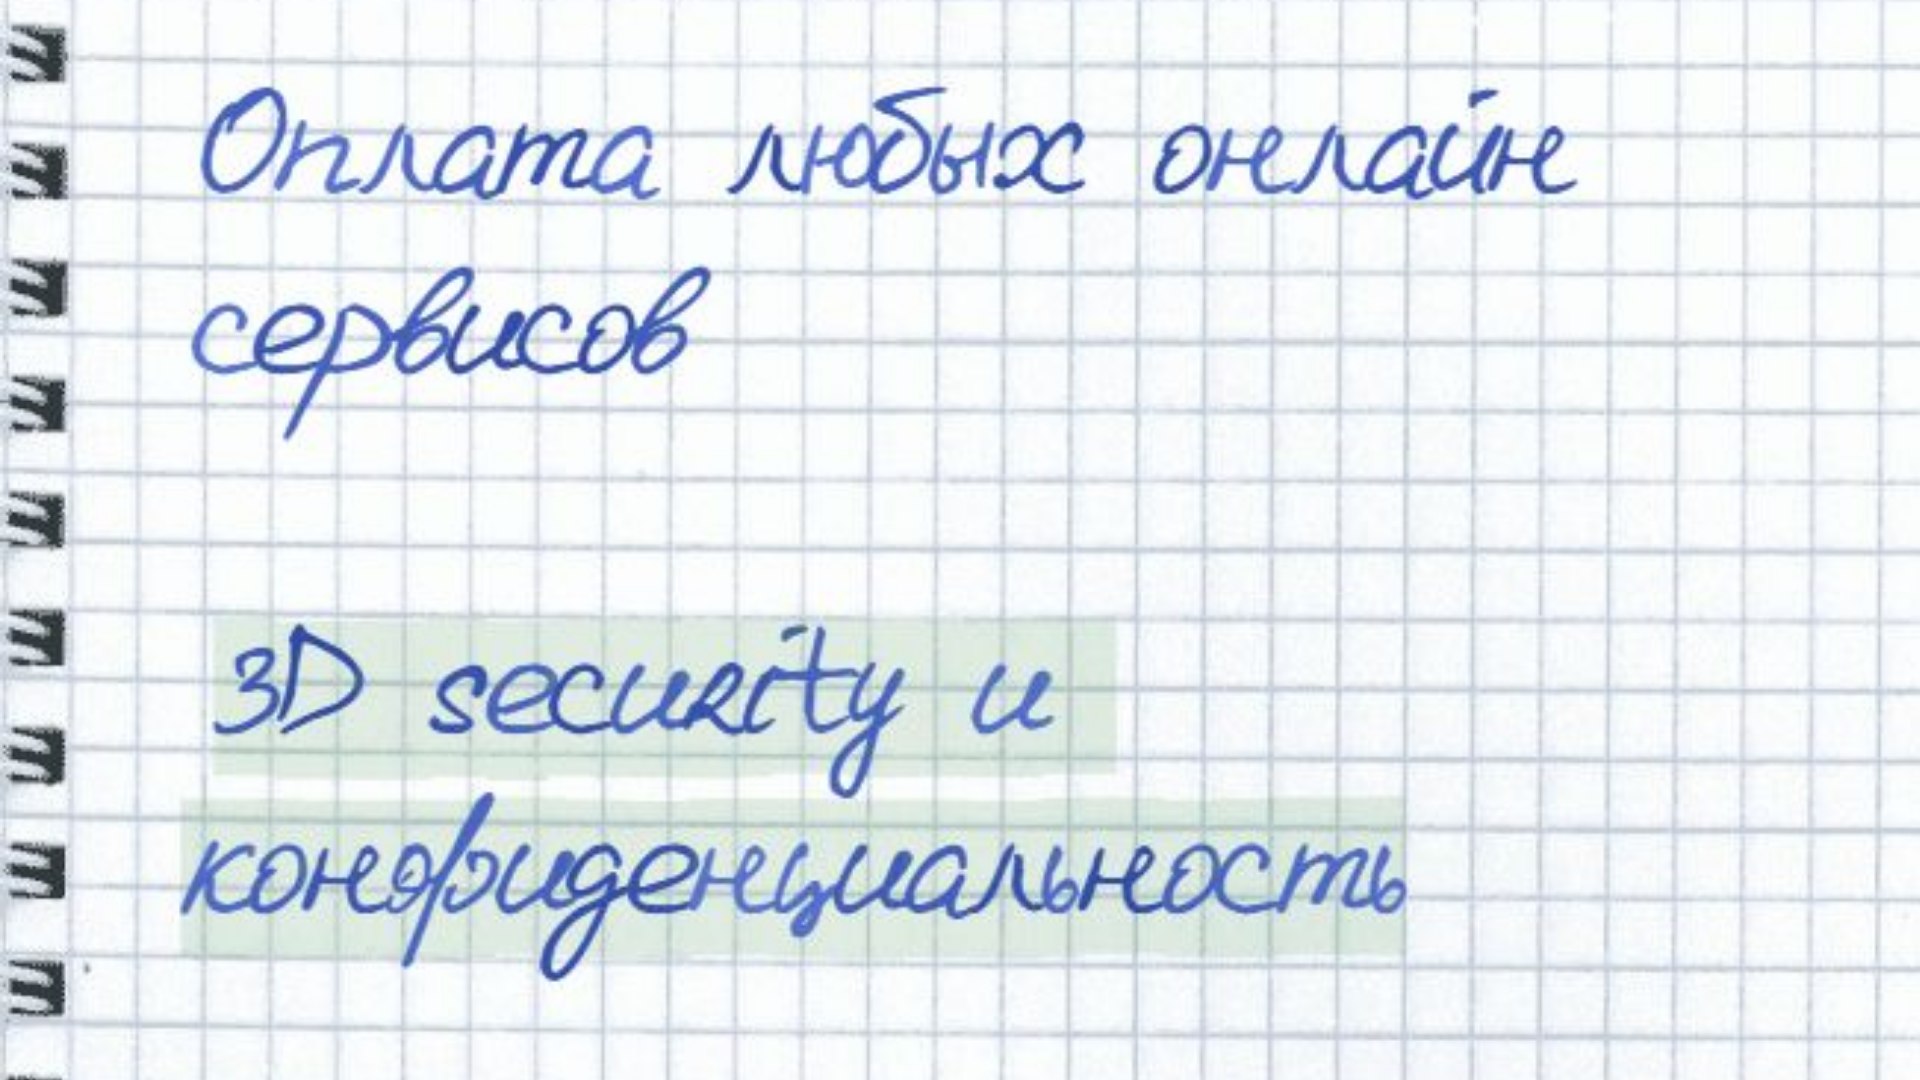 Оплата любых онлайн
сервисов
3D security и
конфиденциальность